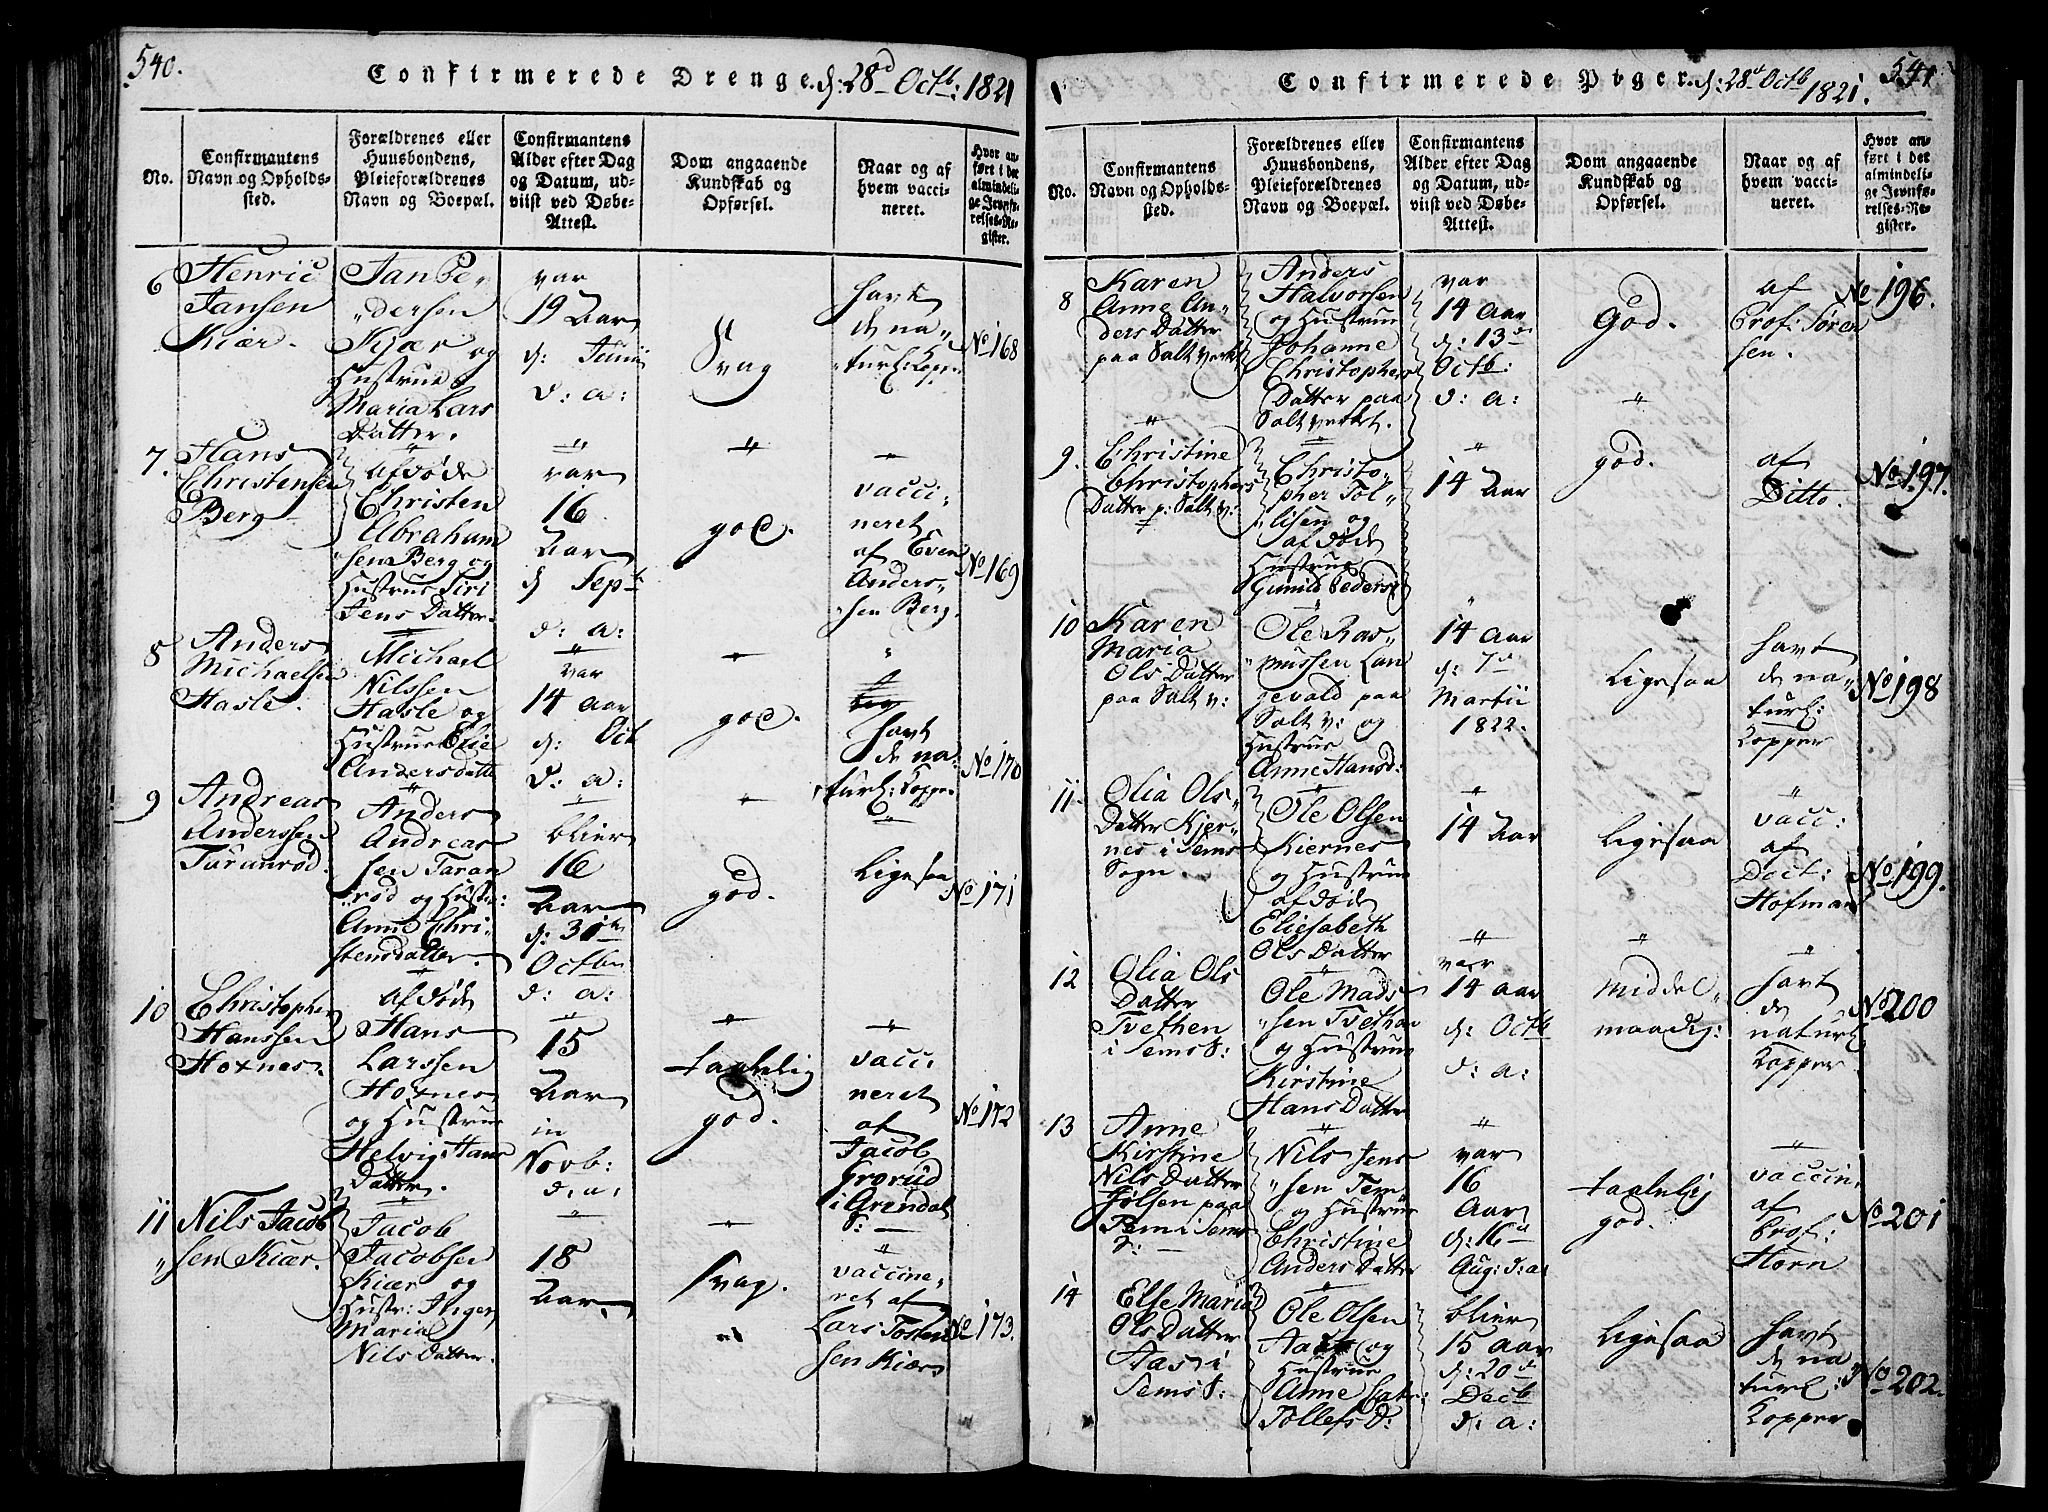 540.
Confirmerede Drenge. d: 28d Octb: 1821
No.
Confirmantens
Navn og Opholds-
sted.
Forældrenes eller
Huusbondens,
Pleieforældrenes
Navn og Boepæl.
Confirmantens
Alder efter Dag
og Datum, ud-
viist ved Døbe-
Attest.
Dom angaaende
Kundskab og
Opførsel.
Naar og af
hvem vacci-
neret.
Hvor an-
ført i det
almindeli-
ge Jevnfø-
relses-Re-
gister.
6
Henric
Jansen
Kiær.
Jan Pe-
dersen
Kjær og
Hustrue
Maria Lars
Datter.
var
19 Aar
d: Junii
d: a:
Svag
havt
de na-
turl: Kopp
No 168
7.
Hans
Christensen
Berg
afdøde
Christen
Abraham
sen Berg og
Hustrue Siri
Jens Datter.
var
16
Aar
d Septb
d: a:
god.
vacci-
neret
af Even
Anders-
sen Berg.
No 169
8
Anders
Michaelsen
Hasle.
Michael
Nilssen
Hasle og
Hustrue Elie
Andersdatte
var
14 Aar
d: Oct
d: a:
god.
havt
de na-
turl: Kopper
No 170
9
Andreas
Anderssen
Taranrød.
Anders
Andreas
sen Taran
rød og Hustr:
Anne Chri-
stensdatter.
blier
16
Aar
d: 31te
Octbr
d: a:
god.
Ligesaa
No 171
10
Christopher
Hanssen
Hoxnes.
afdøde
Hans
Larssen
Hoxnes
og Hustrue
Helvig Hans
Datter.
15
Aar
in
Novb:
d: a:
taalelig
god.
vacci-
neret
af
Jacob
Grorud
i Arendal
S:
No 172
11
Nils Jacob
sen Kiær.
Jacob
Jacobsen
Kiær og
Hustr: Inger
Maria
Nils Datter.
18
Aar.
svag.
vaccine-
ret af
Lars Tosten
sen Kiær
No 173.
541
Confirmerede Piger. d: 28d Octb 1821.
No.
Confirmantens
Navn og Opholds-
sted.
Forældrenes eller
Huusbondens,
Pleieforældrenes
Navn og Boepæl.
Confirmantens
Alder efter Dag
og Datum, ud-
viist ved Døbe-
Attest.
Dom angaaende
Kundskab og
Opførsel.
Naar og af
hvem vacci-
neret.
Hvor an-
ført i det
almindeli-
ge Jevnfø-
relses-Re-
gister.
8
Karen
Anne An-
ders Datter
paa Saltverket
Anders
Halvorsen
og Hustrue
Johanne
Christophers
Datter paa
Saltverket.
var
14 Aar
d: 13de
Octb:
d: a:
God.
af
Prof: Søren
sen.
No 196.
9.
Christine
Christophers
Datter p: Salt v:
Christo-
pher Tol-
lisen og
afdøde
Hustrue
Gunild Peders
14 Aar
god.
af
Ditto.
No 197.
10
Karen
Maria
Ols Datter
paa Salt v:
Ole Ras-
mussen Lan
gevald paa
Salt v: og
Hustrue
Anne Hansd:
14 Aar
d: 7de
Martii
1822.
Ligesaa
havt
de na-
turl:
Kopper
No 198
11
Olia Ols
Datter Kjer-
nes i Sems
Sogn.
Ole Olsen
Kiernes
og Hustrue
afdøde
Eliesabeth
Ols Datter
14 Aar
Ligesaa
vacc:
af
Doct:
Hofman
No 199.
12
Olia Ols
Datter
Tvethen
i Sems S:
Ole Mads
sen Tvethen
og Hustrue
Kirstine
Hans Datter
var
14 Aar
d: Octb
d: a:
middel-
maadig:
havt
de
naturl
Kopper
No 200
13
Anne
Kirstine
Nils Datter
Jølsen paa
Rem i Sems
S:
Nils Jens
sen Rem
og Hustrue
Christine
Anders Datter
var
16
Aar
d: 16d
Aug: d: a:
taalelig
god.
vaccin.
af
Prof:
Horn
No 201
14
Else Maria
Ols Datter
Aas i
Sems S:
Ole Olsen
Aas og
Hustrue
Anne
Tollefs D:
blier
15 Aar
d: 20de
Decb
d: a:
Ligesaa
havt
de na
turl:
Kopper
No 202.